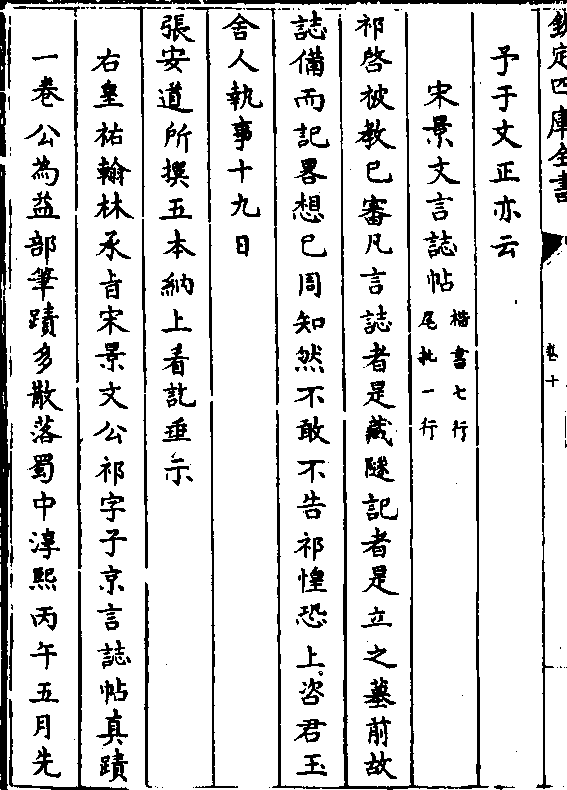 欽定四庫全書
卷十
予于文正亦云
宋景文言誌帖楷書七行尾批一行
祁啓被教已審凡言誌者是藏隧記者是立之墓前故
誌備而記畧想已周知然不敢不告祁惶恐上咨君玉
舍人執事十九日
張安道所撰五本納上看訖垂示
右皇祐翰林承旨宋景文公祁字子京言誌帖真蹟
一卷公為益部筆蹟多散落蜀中淳熙丙午五月先